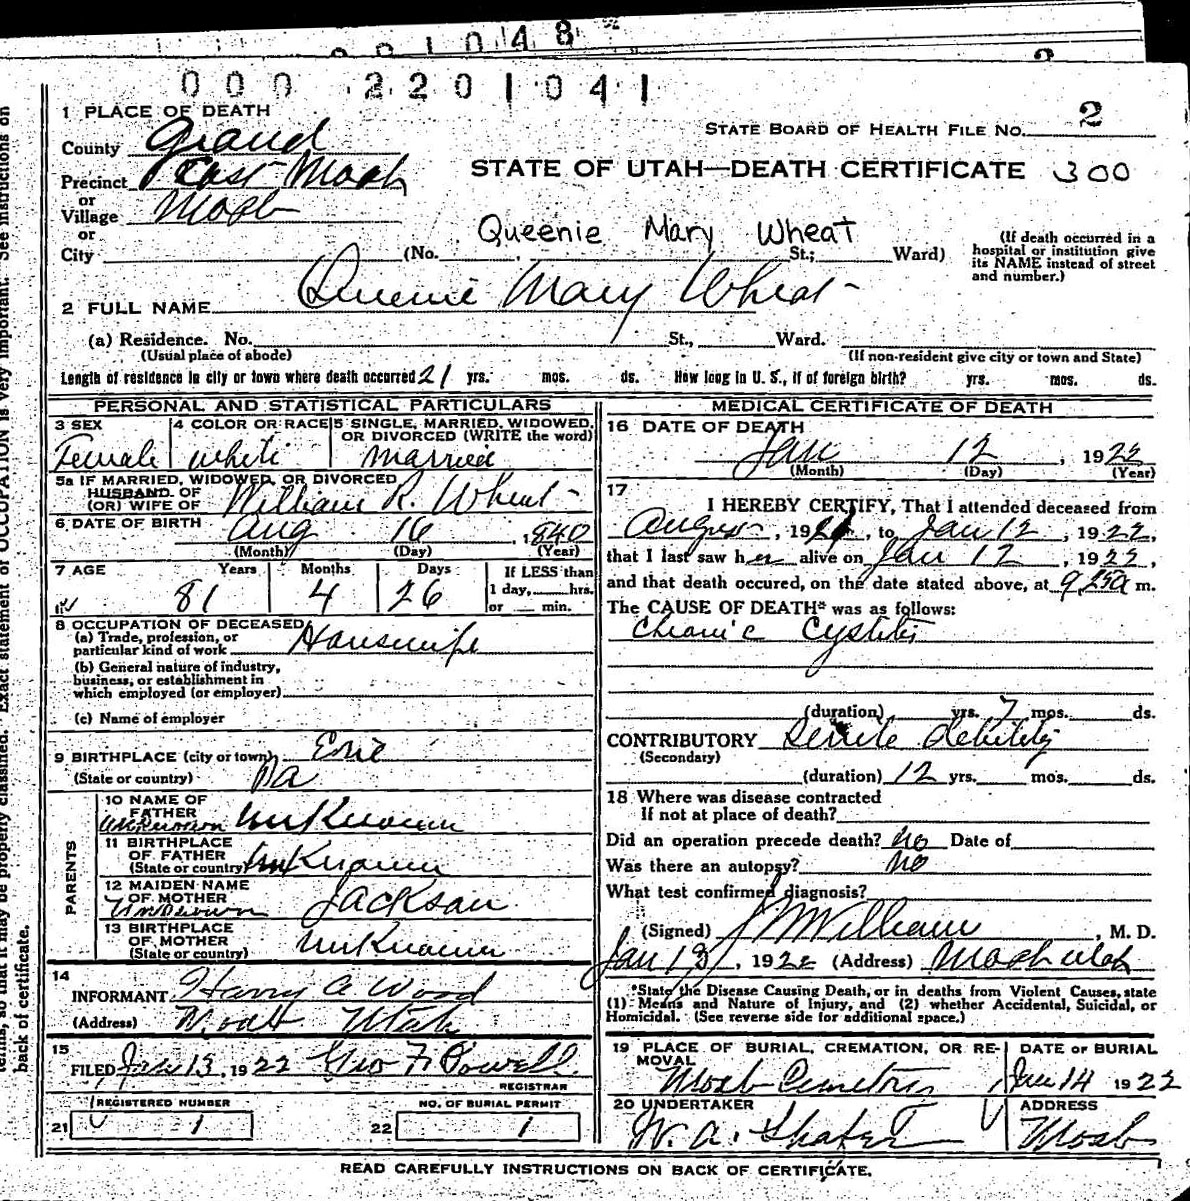 001048
2
000 2201041
1 PLACE OF DEATH
2
STATE BOARD OF HEALTH FILE NO.
County Grand
STATE OF UTAH—DEATH CERTIFICATE 300
Precinct East Moab
or
Village Moab
or
Queenie Mary Wheat
City (No. , St.; Ward)
(If death occurred in a
hospital or institution give
its NAME instead of street
and number.)
2 FULL NAME Queenie Mary Wheat
(a) Residence. No. St., Ward.
(Usual place of abode) (If non-resident give city or town and State)
Length of residence in city or town where death occurred 21 yrs. mos. ds. How long in U. S., if of foreign birth? yrs. mos. ds.
PERSONAL AND STATISTICAL PARTICULARS
3 SEX 4 COLOR OR RACE 5 SINGLE, MARRIED, WIDOWED,
OR DIVORCED (WRITE the word)
Female white Married
5a IF MARRIED, WIDOWED, OR DIVORCED
HUSBAND OF
(OR) WIFE OF William R. Wheat
6 DATE OF BIRTH Aug 16, 1840
(Month) (Day) (Year)
7 AGE Years Months Days If LESS than
1 day, hrs.
or min.
81 4 26
8 OCCUPATION OF DECEASED
(a) Trade, profession, or
particular kind of work Housewife
(b) General nature of industry,
business, or establishment in
which employed (or employer)
(c) Name of employer
9 BIRTHPLACE (city or town) Erie
(State or country) Pa
PARENTS
10 NAME OF
FATHER
Unknown Unknown
11 BIRTHPLACE
OF FATHER
(State or country) Unknown
12 MAIDEN NAME
OF MOTHER
Unknown Jackson
13 BIRTHPLACE
OF MOTHER
(State or country) Unknown
14
INFORMANT Harry A Wood
(Address) Moab Utah
15
FILED Jan 13, 1922 Geo F. Powell
REGISTRAR
REGISTERED NUMBER NO. OF BURIAL PERMIT
21 1 22 1
MEDICAL CERTIFICATE OF DEATH
16 DATE OF DEATH
Jan 12, 1922
(Month) (Day) (Year)
17
I HEREBY CERTIFY, That I attended deceased from
August, 1921, to Jan 12, 1922,
that I last saw her alive on Jan 12, 1922,
and that death occured, on the date stated above, at 9 25a m.
The CAUSE OF DEATH* was as follows:
Chronic Cystitis
(duration) yrs. 7 mos. ds.
CONTRIBUTORY Senile debility
(Secondary)
(duration) 12 yrs. mos. ds.
18 Where was disease contracted
If not at place of death?
Did an operation precede death? No Date of
Was there an autopsy? No
What test confirmed diagnosis?
(Signed) J W Williams, M. D.
Jan 13, 1922 (Address) Moab Utah
*State the Disease Causing Death, or in deaths from Violent Causes, state
(1) Means and Nature of Injury, and (2) whether Accidental, Suicidal, or
Homicidal. (See reverse side for additional space.)
19 PLACE OF BURIAL, CREMATION, OR RE-
MOVAL
DATE OF BURIAL
Moab Cemetery Jan 14 1922
20 UNDERTAKER ADDRESS
W. A. Shafer Moab
READ CAREFULLY INSTRUCTIONS ON BACK OF CERTIFICATE.
terms, so that it may be properly classified. Exact statement of OCCUPATION is very important. See instructions on
back of certificate.